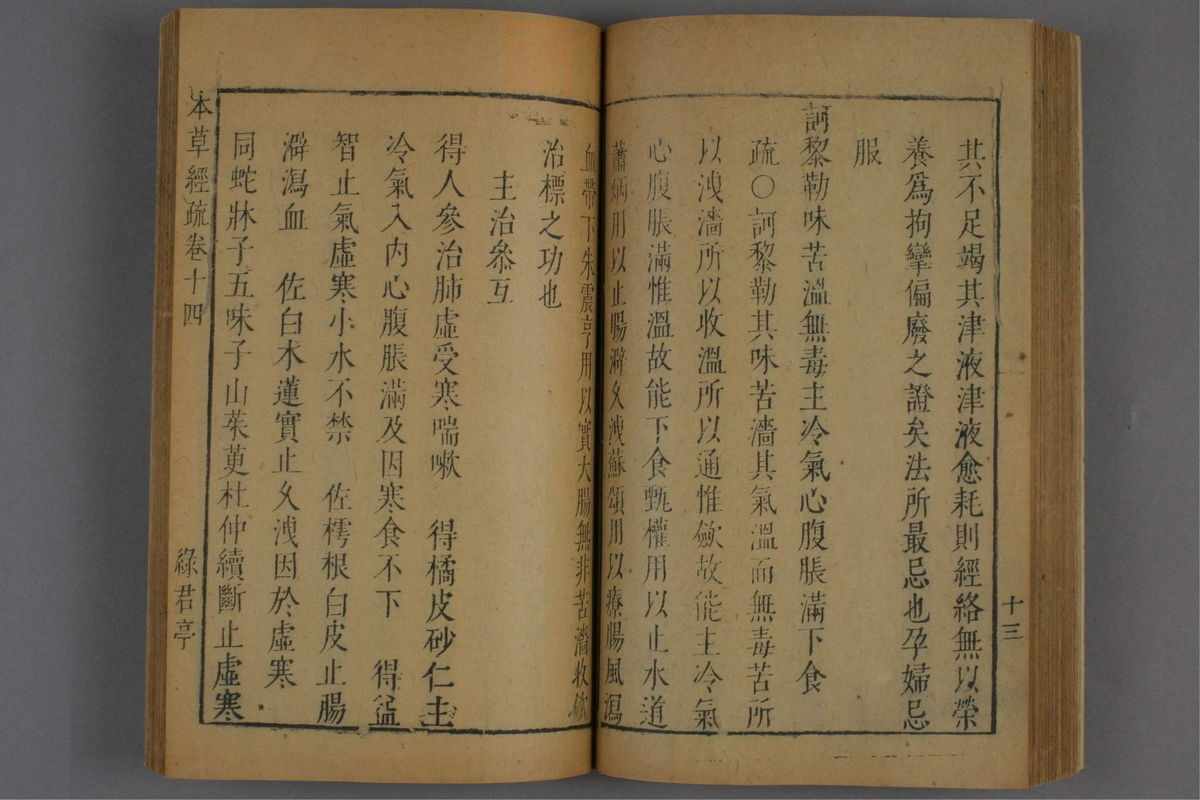 十三
其不足竭其津液津液愈耗則經絡無以榮
養爲拘攣偏廢之證矣法所最忌也孕婦忌
服
訶黎勒味苦溫無毒主冷氣心腹脹滿下食
疏○訶黎勒其味苦濇其氣溫而無毒苦所
以洩濇所以收溫所以通惟斂故能主冷氣
心腹脹滿惟溫故能下食甄權用以止水道
蕭炳用以止腸澼久洩蘇頌用以療腸風瀉
血帶下朱震亨用以實大腸無非苦濇收斂
治標之功也
主治叅互
得人參治肺虛受寒喘嗽 得橘皮砂仁主
冷氣入内心腹脹滿及因寒食不下 得益
智止氣虛寒小水不禁 佐樗根白皮止腸
澼瀉血 佐白术蓮實止久洩因於虛寒
同蛇牀子五味子山茱萸杜仲續斷止虛寒
本草經疏卷十四 綠君亭